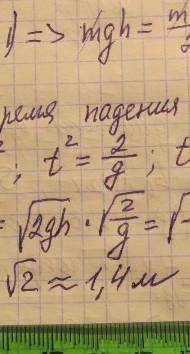 1) => mgh = m
ремя падения
; t² = 2/g ; t
= √2gh · √2/g = √
√2 ≈ 1,4 м